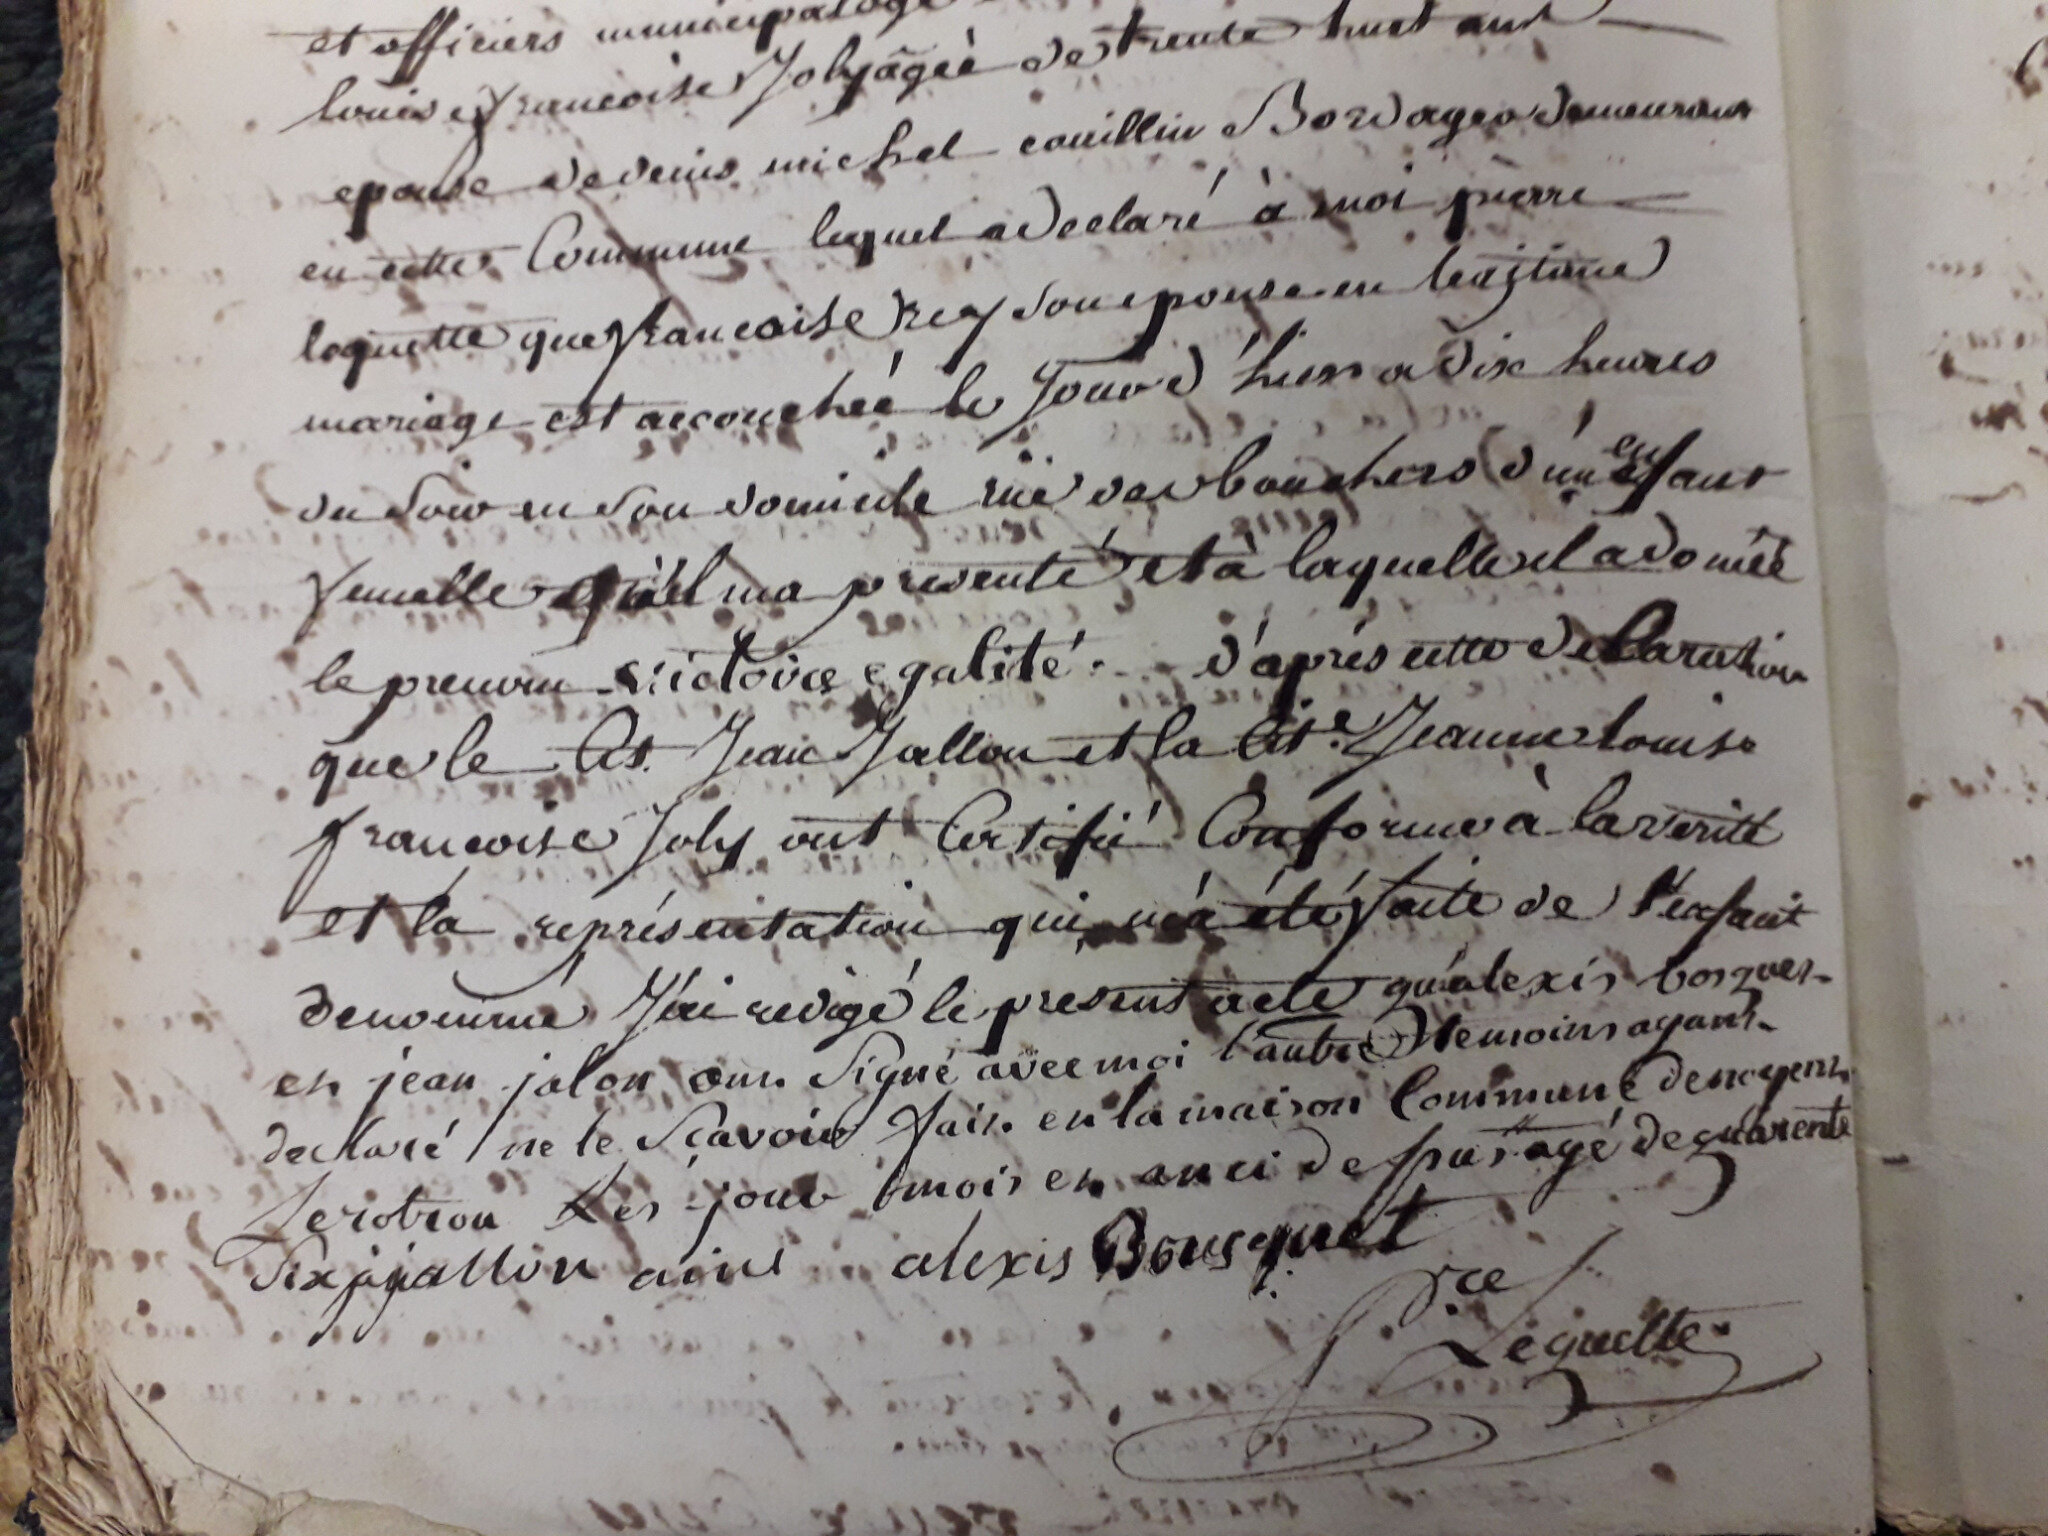 et officiers municipal agé
louise francoise Joly âgée de trente huit ans
epouse de denis michel couillin Bordages demeurant
en cette Commune lequel a declaré à moi pierre
loquette que francoise rey son epouse en legitime
mariage est accouchée le Jour d'hier a dix heures
du soir en son domicile rüe des bouchers d'un enfant
femelle qu'il ma présenté et à laquelle il a donné
le prenom victoire egalité. d'après cette declaration
que le Cit. Jean Jallon et la Cite. Jeanne louise
francoise Joly ont Certifié Conforme à la verité
et la représentation qui m'a été faite de l'enfant
denommé J'ai redigé le présent acte qu'alexis bosquet
et jean jalon ont Signé avec moi l'autre temoins ayant
declaré ne le Sçavoir fait en la maison Commune de noyen
les jour mois et an ci dessus agé de quarente
Six jj jallon ainé alexis Bousquet
Pre
Lequette